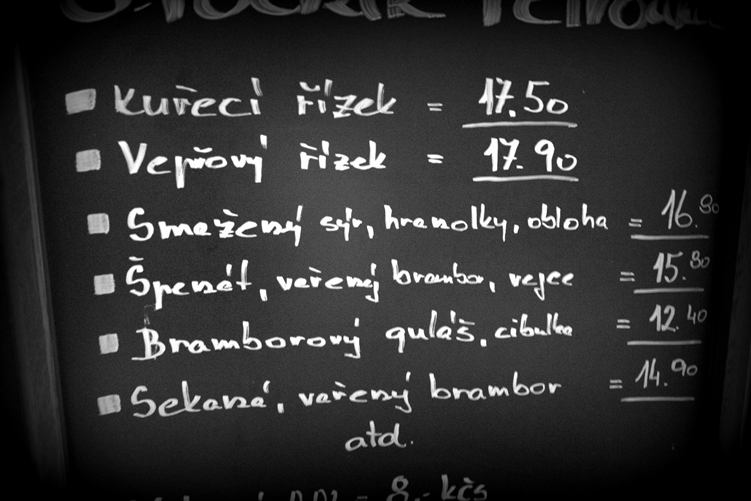 Kuřecí řízek = 17.50
Vepřový řízek = 17.90
Smažený sýr, hranolky, obloha = 16.80
Špenát, vařený brambor, vejce = 15.80
Bramborový guláš, cibulka = 12.40
Sekaná, vařený brambor = 14.90
atd.
8,- kčs